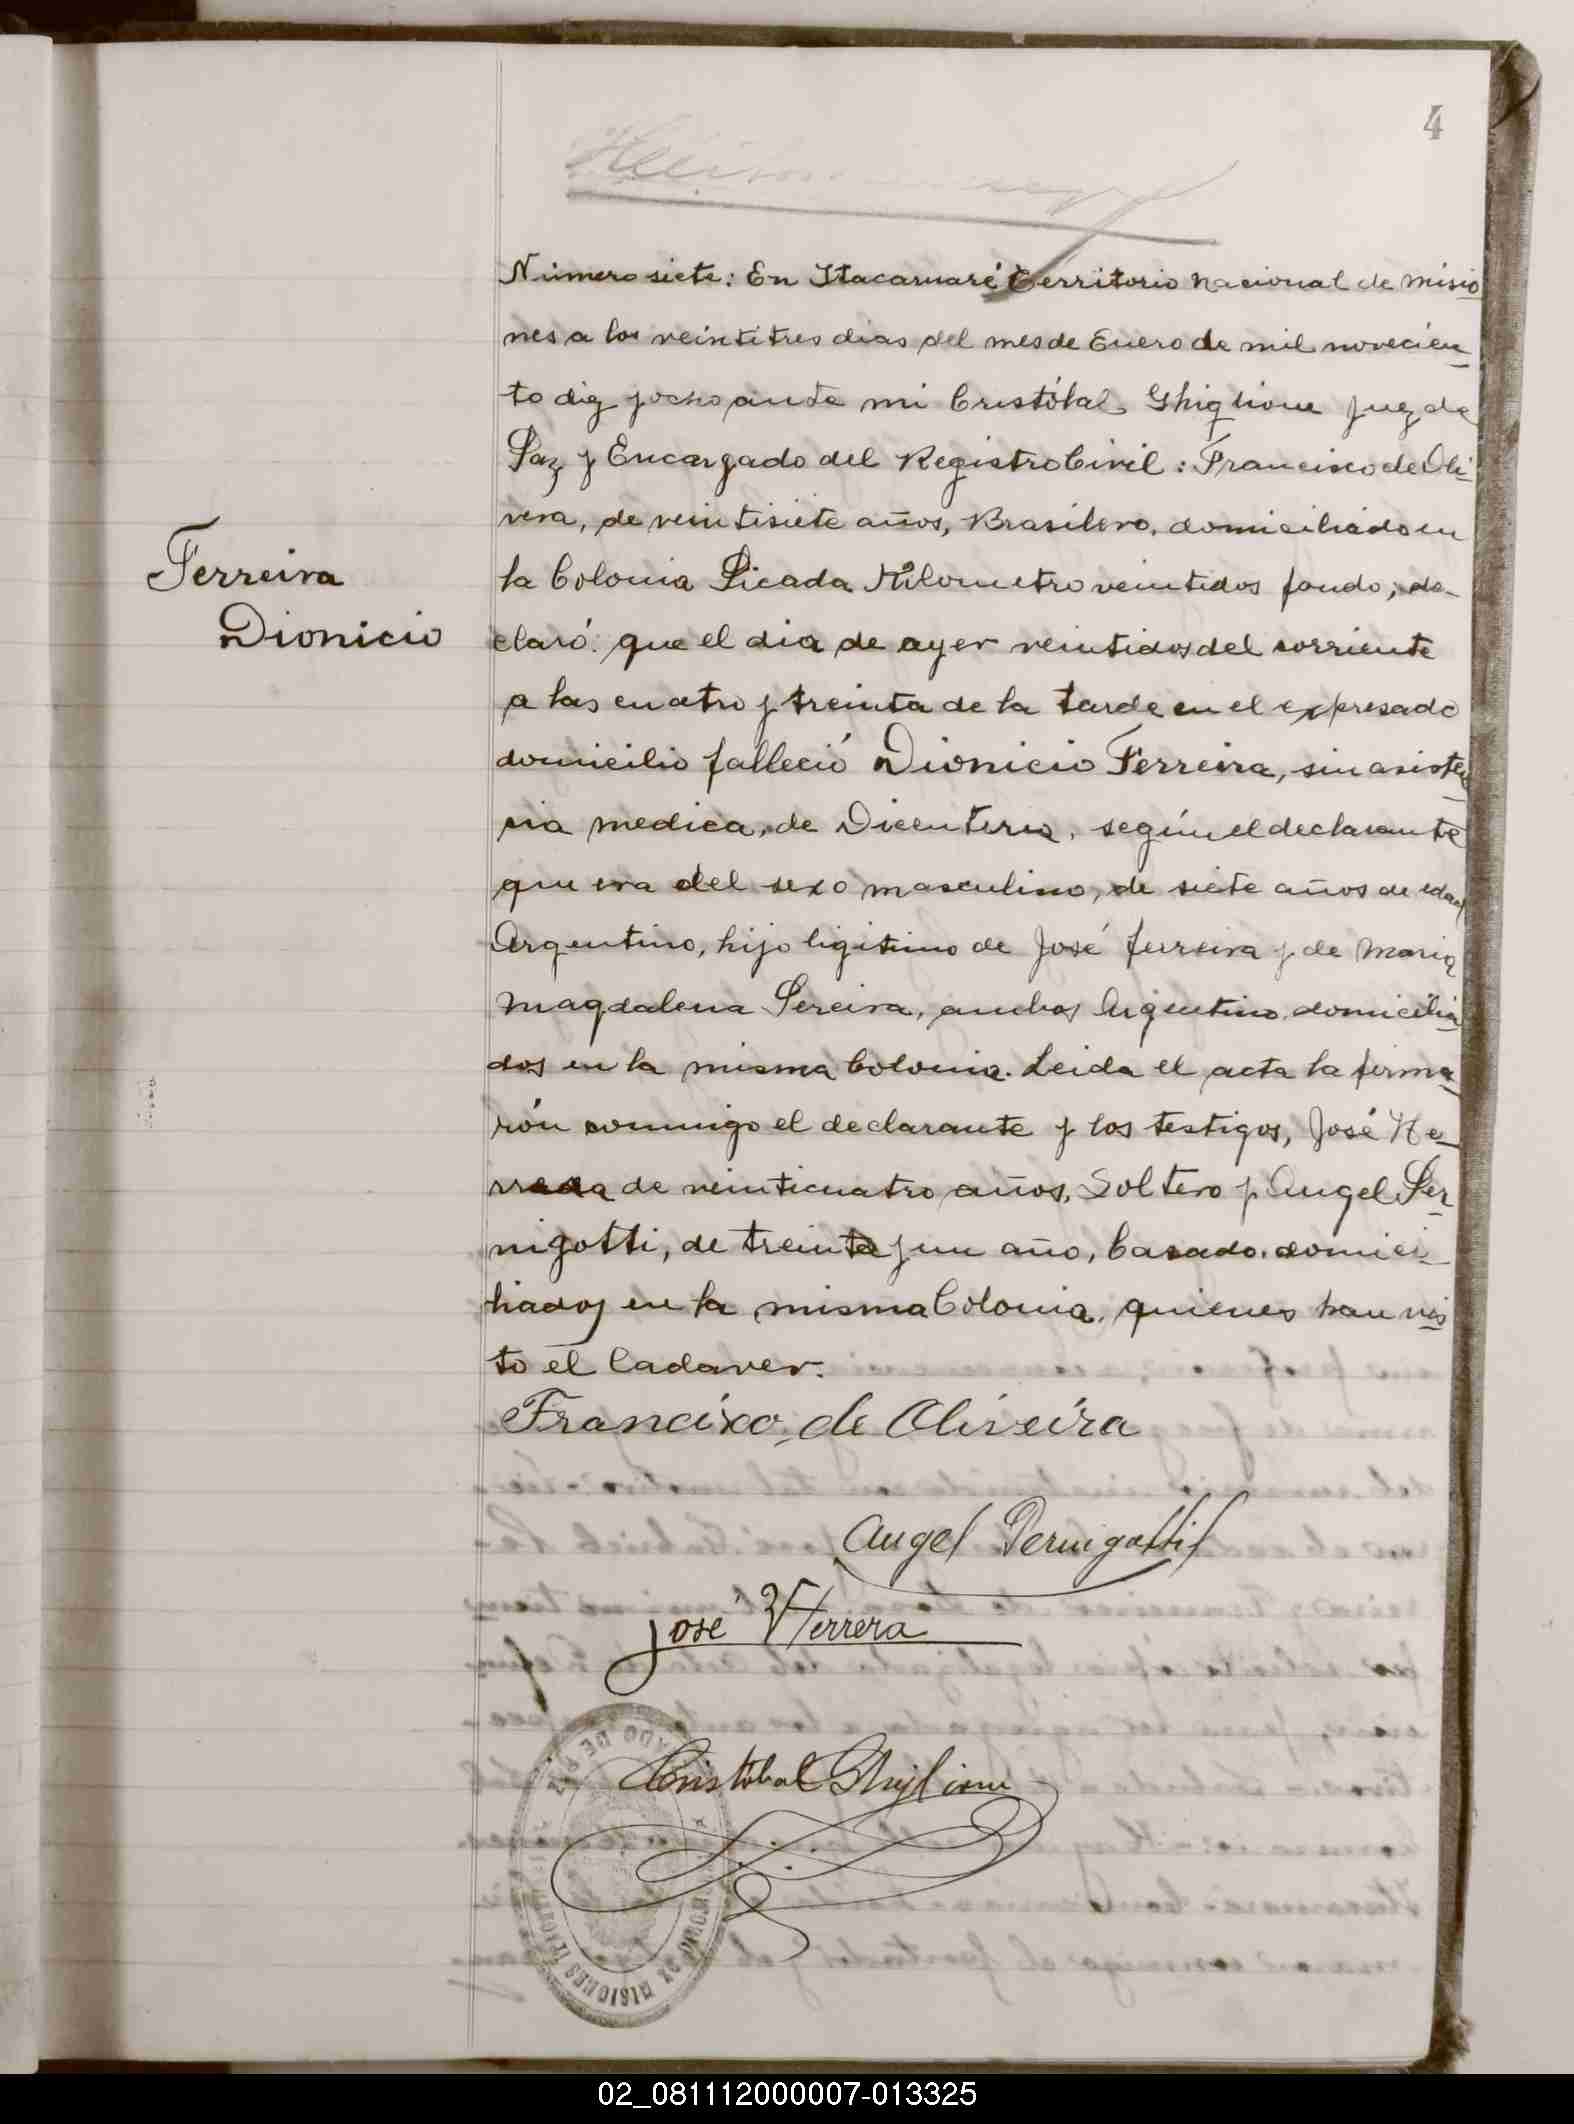 4
Número siete: En Itacaruaré Territorio Nacional de Misio
nes a los veintitres dias del mes de Enero de mil novecien_
to diez y ocho ante mi Cristóbal Ghiglione Juez de
Paz y Encargado del Registro Civil: Francisco de Oli-
vera, de veintisiete años, Brasilero, domiciliado en
Ferreira
la Colonia Picada Kilometro veintidos fondo, de-
Dionicio
claró: que el dia de ayer veintidos del corriente
a las cuatro y treinta de la tarde en el expresado
domicilio falleció Dionicio Ferreira, sin asisten
cia medica, de Dicenteria, según el declarante
que era del sexo masculino, de siete años de edad
Argentino, hijo ligitimo de José Ferreira y de Maria
Magdalena Pereira, ambos Argentino domicilia
dos en la misma Colonia. Leida el acta la firma_
rón conmigo el declarante y los testigos, José He_
rrera de veinticuatro años, Soltero y Angel Per_
nigotti, de treinta y un año, Casado, domici_
liados en la misma Colonia, quienes han vis
to el Cadaver.
Francixo de Oliveira
Angel Pernigotti
José Herrera
Cristobal Ghiglione
JUZGADO DE PAZ
TERRITORIO DE MISIONES
02_081112000007-013325